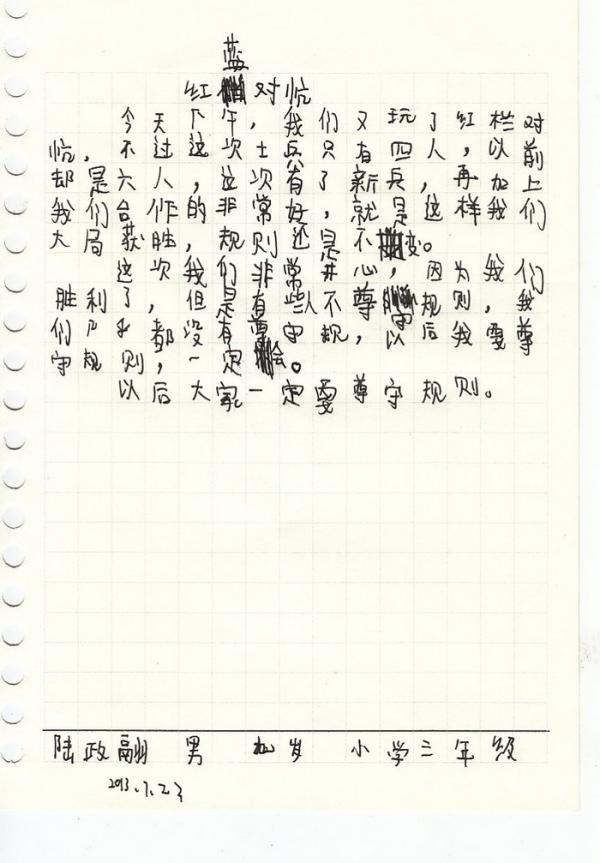 蓝
红对忼
今天下午，我们又玩了红，栏对
忼，不过这次士兵只有四人，以前
却是六人，这次有了新兵，再加上
我们合作的非常好，就是这样我们
大局获胜，规则还是不变。
这次，我们非常开心，因为我们
胜利了，但是有些人不尊守规则，我
们都没有守规，以后我要尊
守规则，一定会。
以后大家一定要尊守规则。
陆政翮 男 九岁 小学三年级
2013.7.23